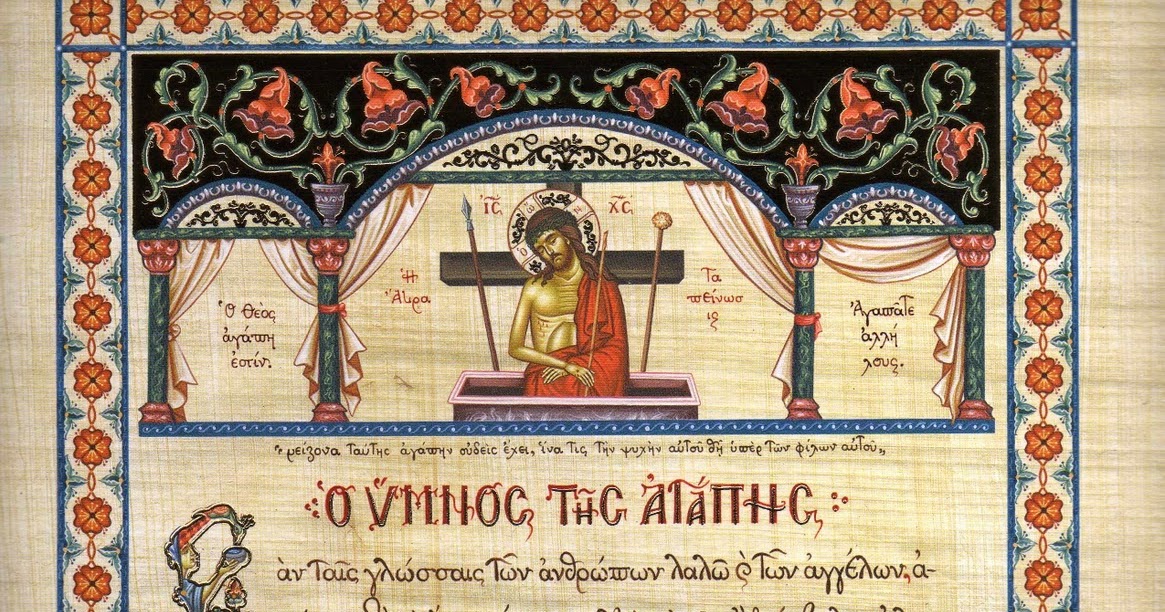 ΙΣ ΧΣ
Ἡ Ἄκρα
Τα
πείνωσ
ις
Ὁ Θεὸς
ἀγάπη
ἐστίν.
Ἀγαπᾶτε
ἀλλή
λους.
"μείζονα ταύτης ἀγάπην οὐδεὶς ἔχει, ἵνα τις τὴν ψυχὴν αὐτοῦ θῇ ὑπὲρ τῶν φίλων αὐτοῦ"
Ὁ ὝΜΝΟΣ Τῆς ἈΓΆΠΗΣ
ὰν ταῖς γλώσσαις τῶν ἀνθρώπων λαλῶ ϗ τῶν ἀγγέλων, ἀ-